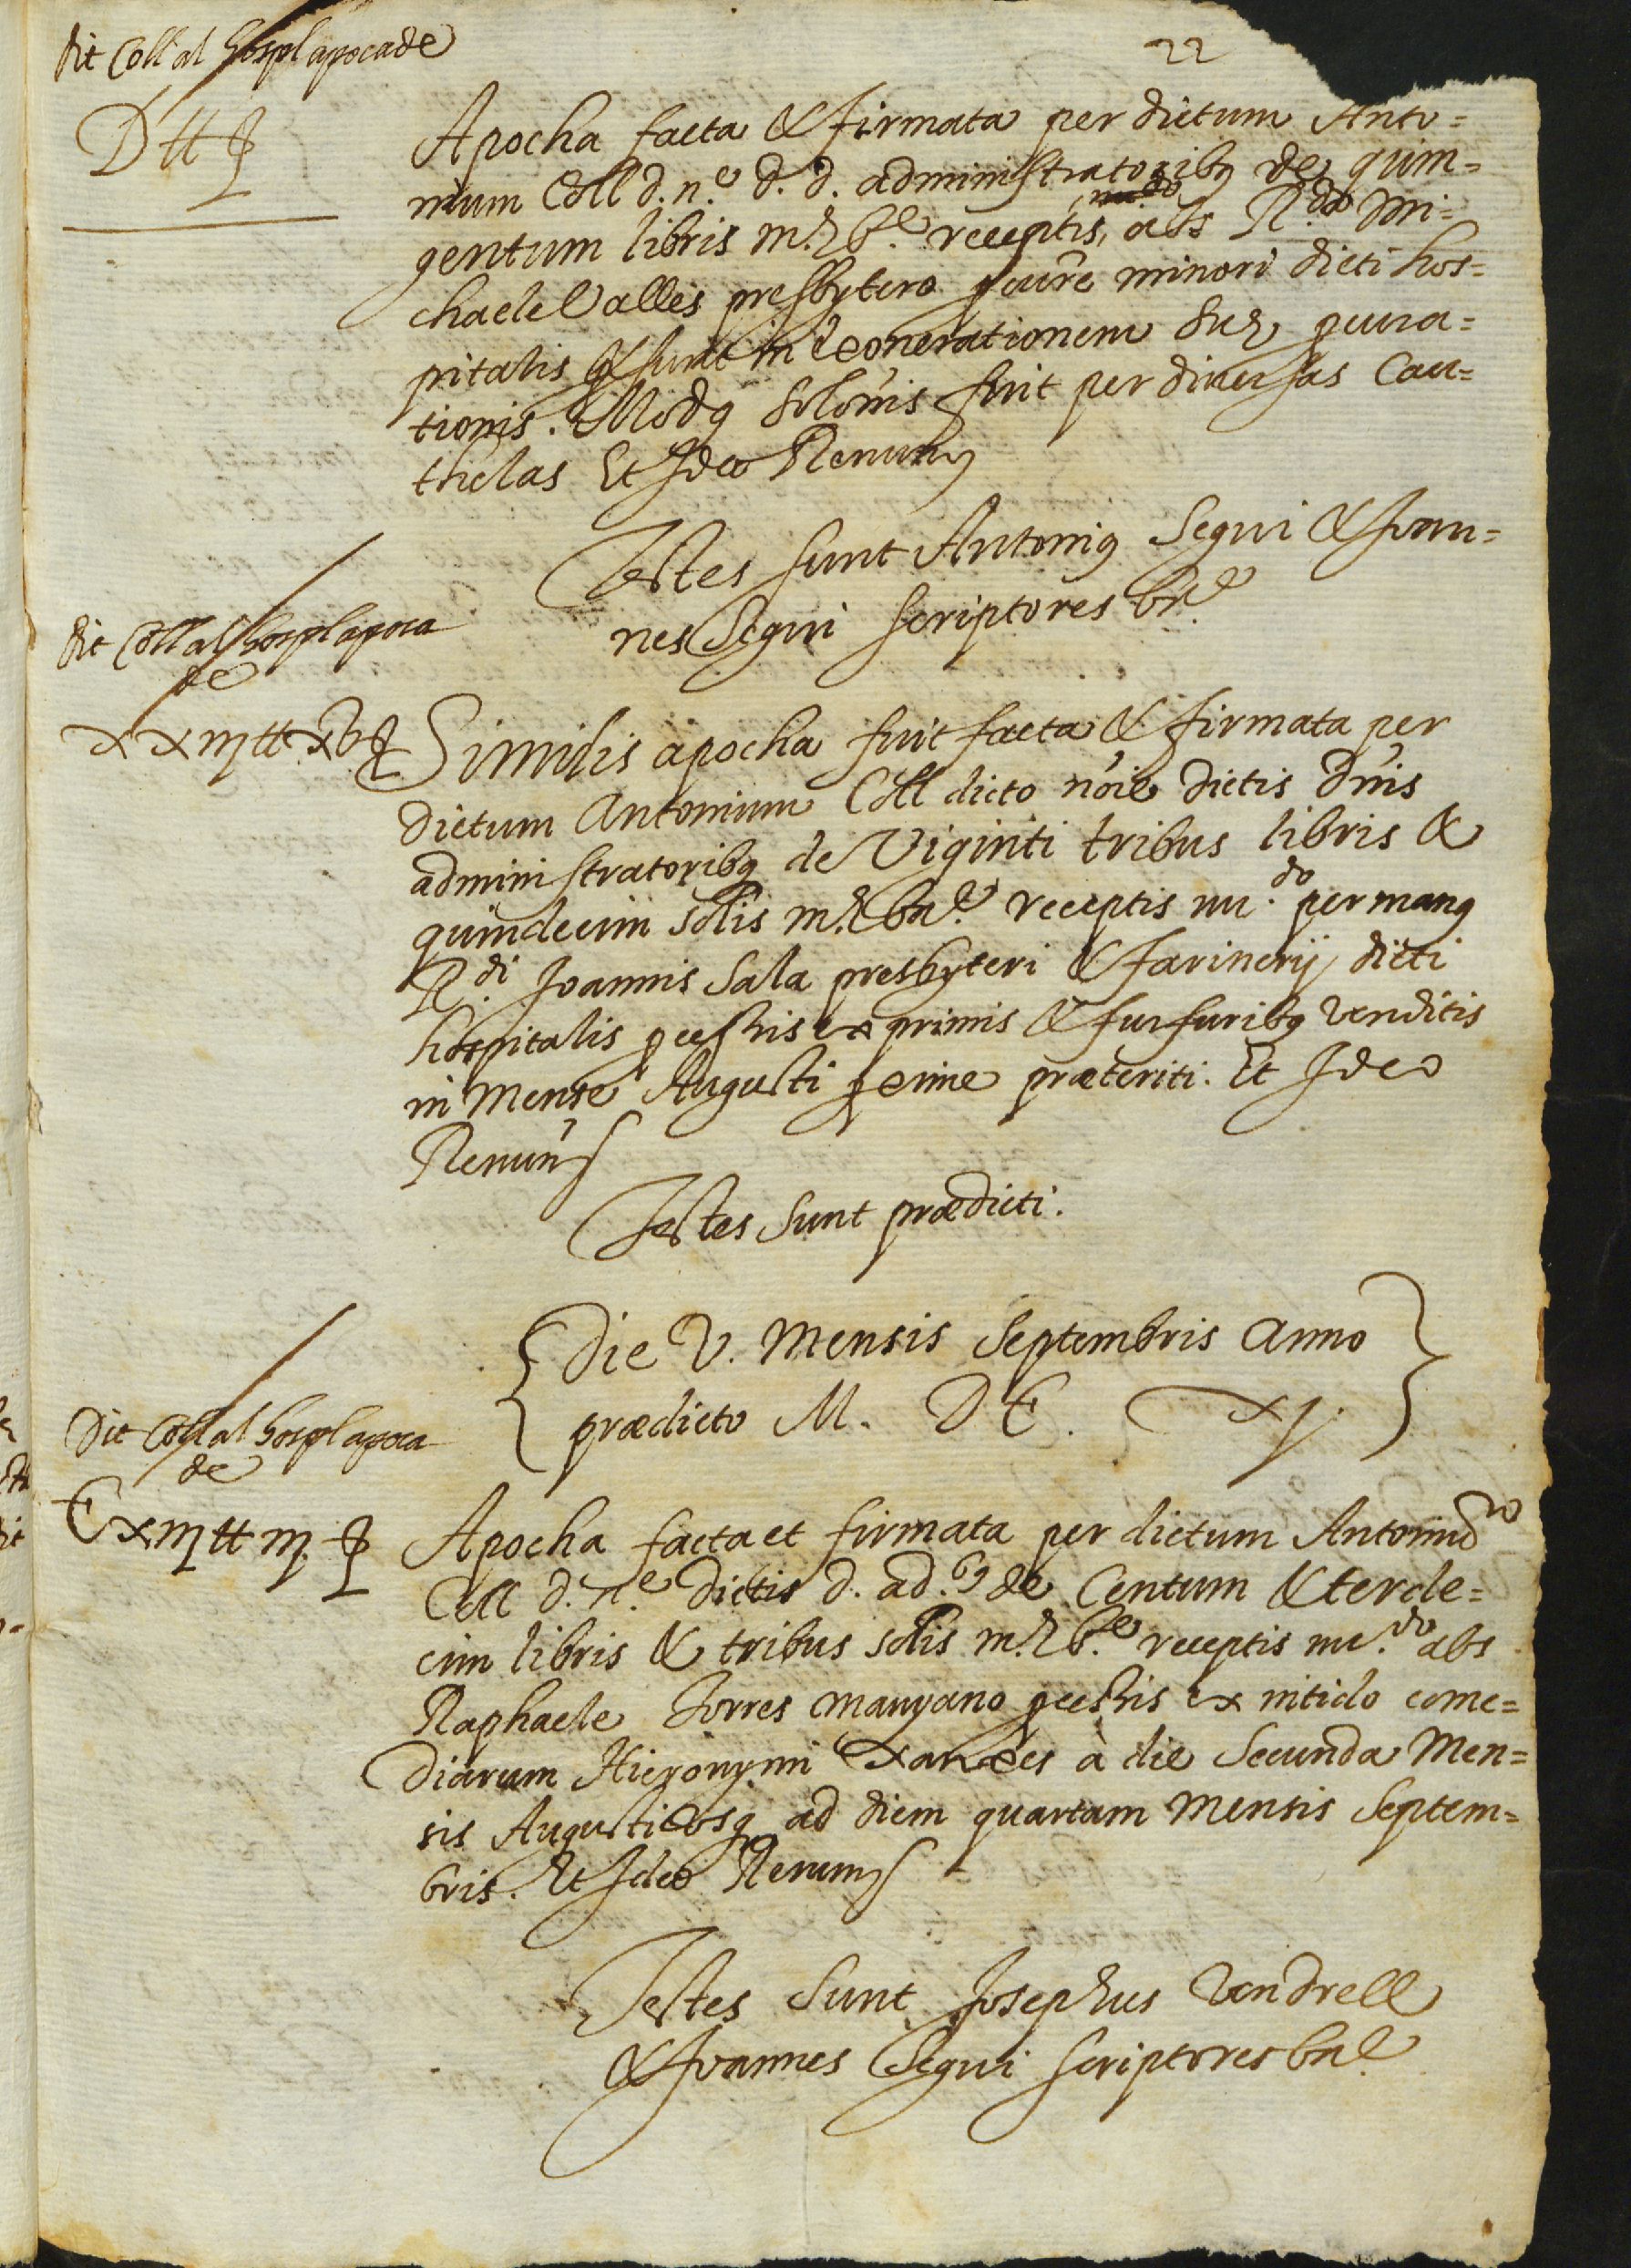 22
dit Coll al Hospl apoca de
D tt
Apocha facta & firmata per dictum Anto=
nium Coll d. n.e d. d. administratoribq de quin=
gentum libris m. b.e receptis, abs R.do Mi=
chaele Valles presbytero pcure minori dicti hos=
pitalis & sunt in exonerationem suæ pcura=
tionis. Modq solōnis fuit per diversas Cau=
thelas Et Ideo Renun
Testes sunt Antoniq Segui & Joan=
nes Segui scriptores bne
dit Coll al hospl apoca
de
xxiij tt xv
Similis apocha fuit facta & firmata per
dictum Antonium Coll dicto nōie dictis Dnis
administratoribq de Viginti tribus libris &
quindecim solis m. bne receptis nu.do per manq
R.di Joannis Sala presbyteri & farinerij dicti
hospitalis pcessis ex primis & furfuribq venditis
in Mense Augusti pxime præteriti. Et Ideo
Renun
Testes sunt prædicti.
Die V. Mensis Septembris Anno
prædicto M. DC. xj.
Dit Coll al hospl apoca
de
Cxiij tt iij
Apocha facta et firmata per dictum Antoniū
Coll d. n.e dictis d. ad.bq de Centum & terde=
cim libris & tribus solis m. b.e receptis nu.do abs
Raphaele Torres manyano pcessis ex nitido come=
diarum Hieronymi Xanxes à die Secunda Men=
sis Augusti Vsq ad diem quartam Mensis Septem=
bris. Et Ideo Renun
Testes Sunt Josephus Vendrell
& Joannes Segui scriptores bne